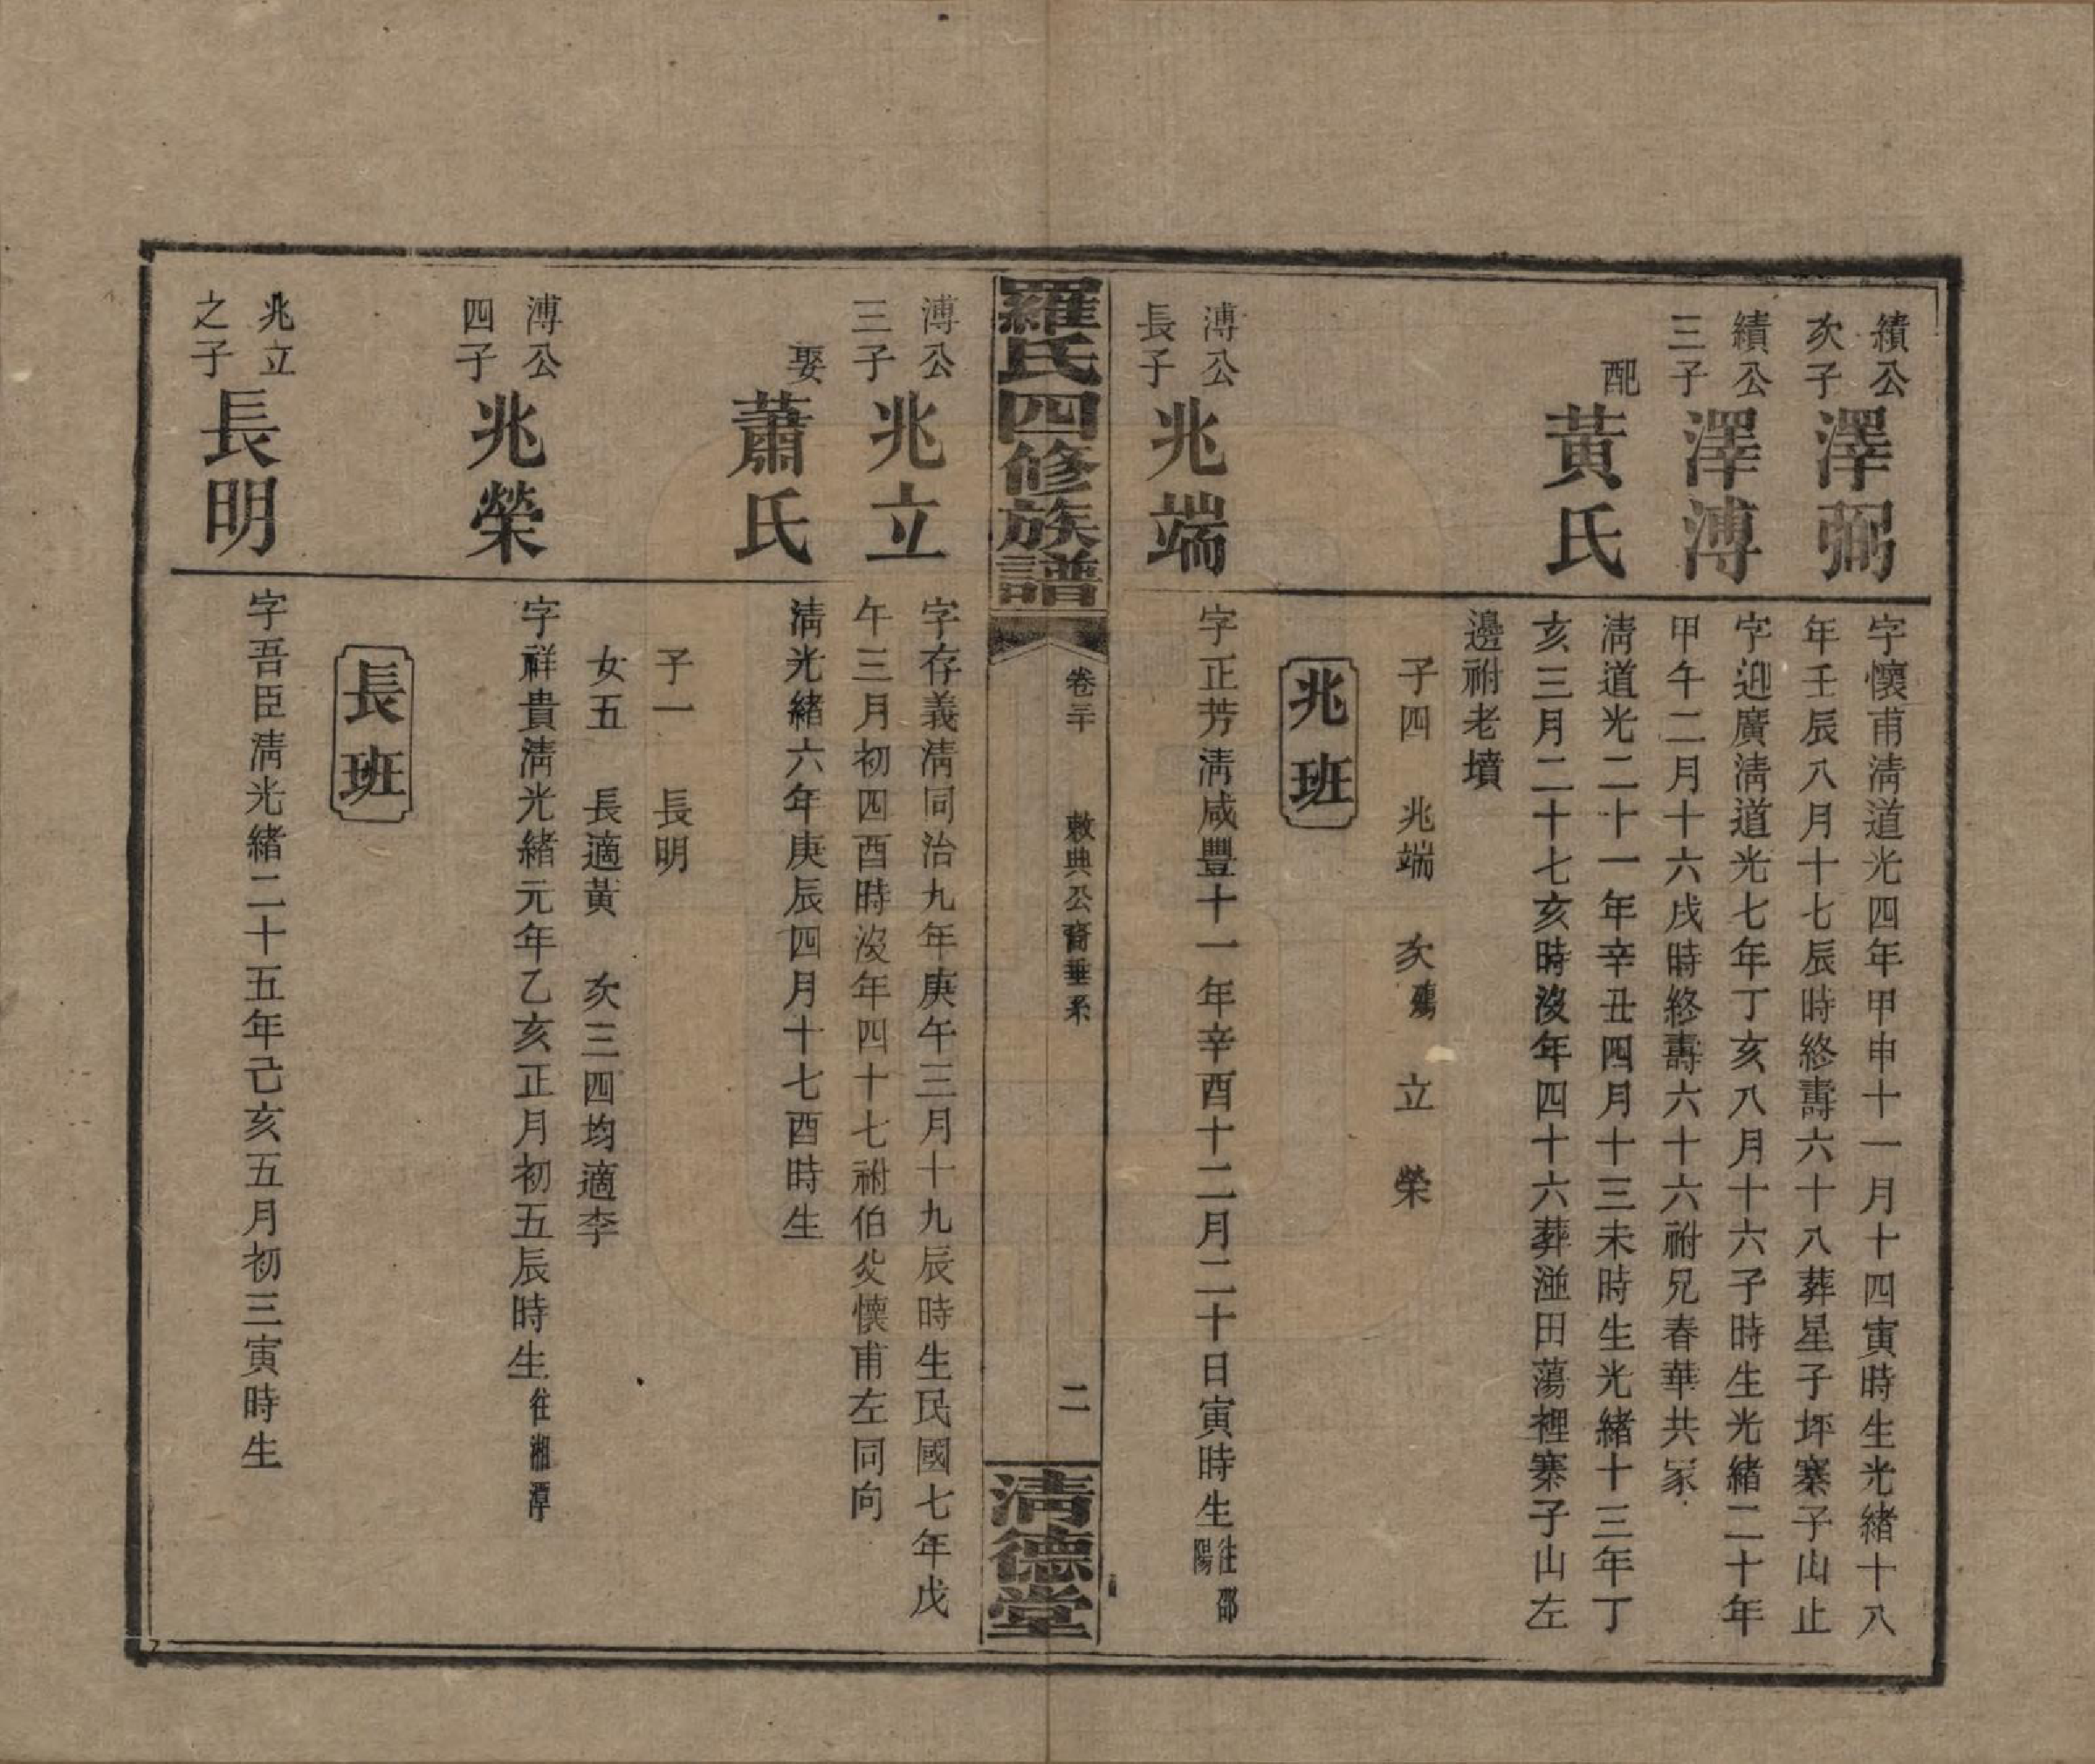 績公
次子
澤弼
字懷甫淸道光四年甲申十一月十四寅時生光緒十八
年壬辰八月十七辰時終壽六十八葬星子坪寨子山止
績公
三子
澤溥
字迎廣淸道光七年丁亥八月十六子時生光緒二十年
甲午二月十六戌時終壽六十六祔兄春華共冢
配
黃氏
淸道光二十一年辛丑四月十三未時生光緒十三年丁
亥三月二十七亥時沒年四十六葬湴田蕩裡寨子山左
邊祔老墳
子四 兆端 次殤 立 榮
兆班
溥公
長子
兆端
字正芳淸咸豐十一年辛酉十二月二十日寅時生往邵
陽
羅氏四修族譜
卷三十
敕典公裔垂系
二
淸德堂
溥公
三子
兆立
字存義淸同治九年庚午三月十九辰時生民國七年戊
午三月初四酉時沒年四十七祔伯父懷甫左同向
娶
蕭氏
淸光緒六年庚辰四月十七酉時生
子一 長明
女五 長適黃 次三四均適李
溥公
四子
兆榮
字祥貴淸光緒元年乙亥正月初五辰時生往湘潭
長班
兆立
之子
長明
字吾臣淸光緒二十五年己亥五月初三寅時生